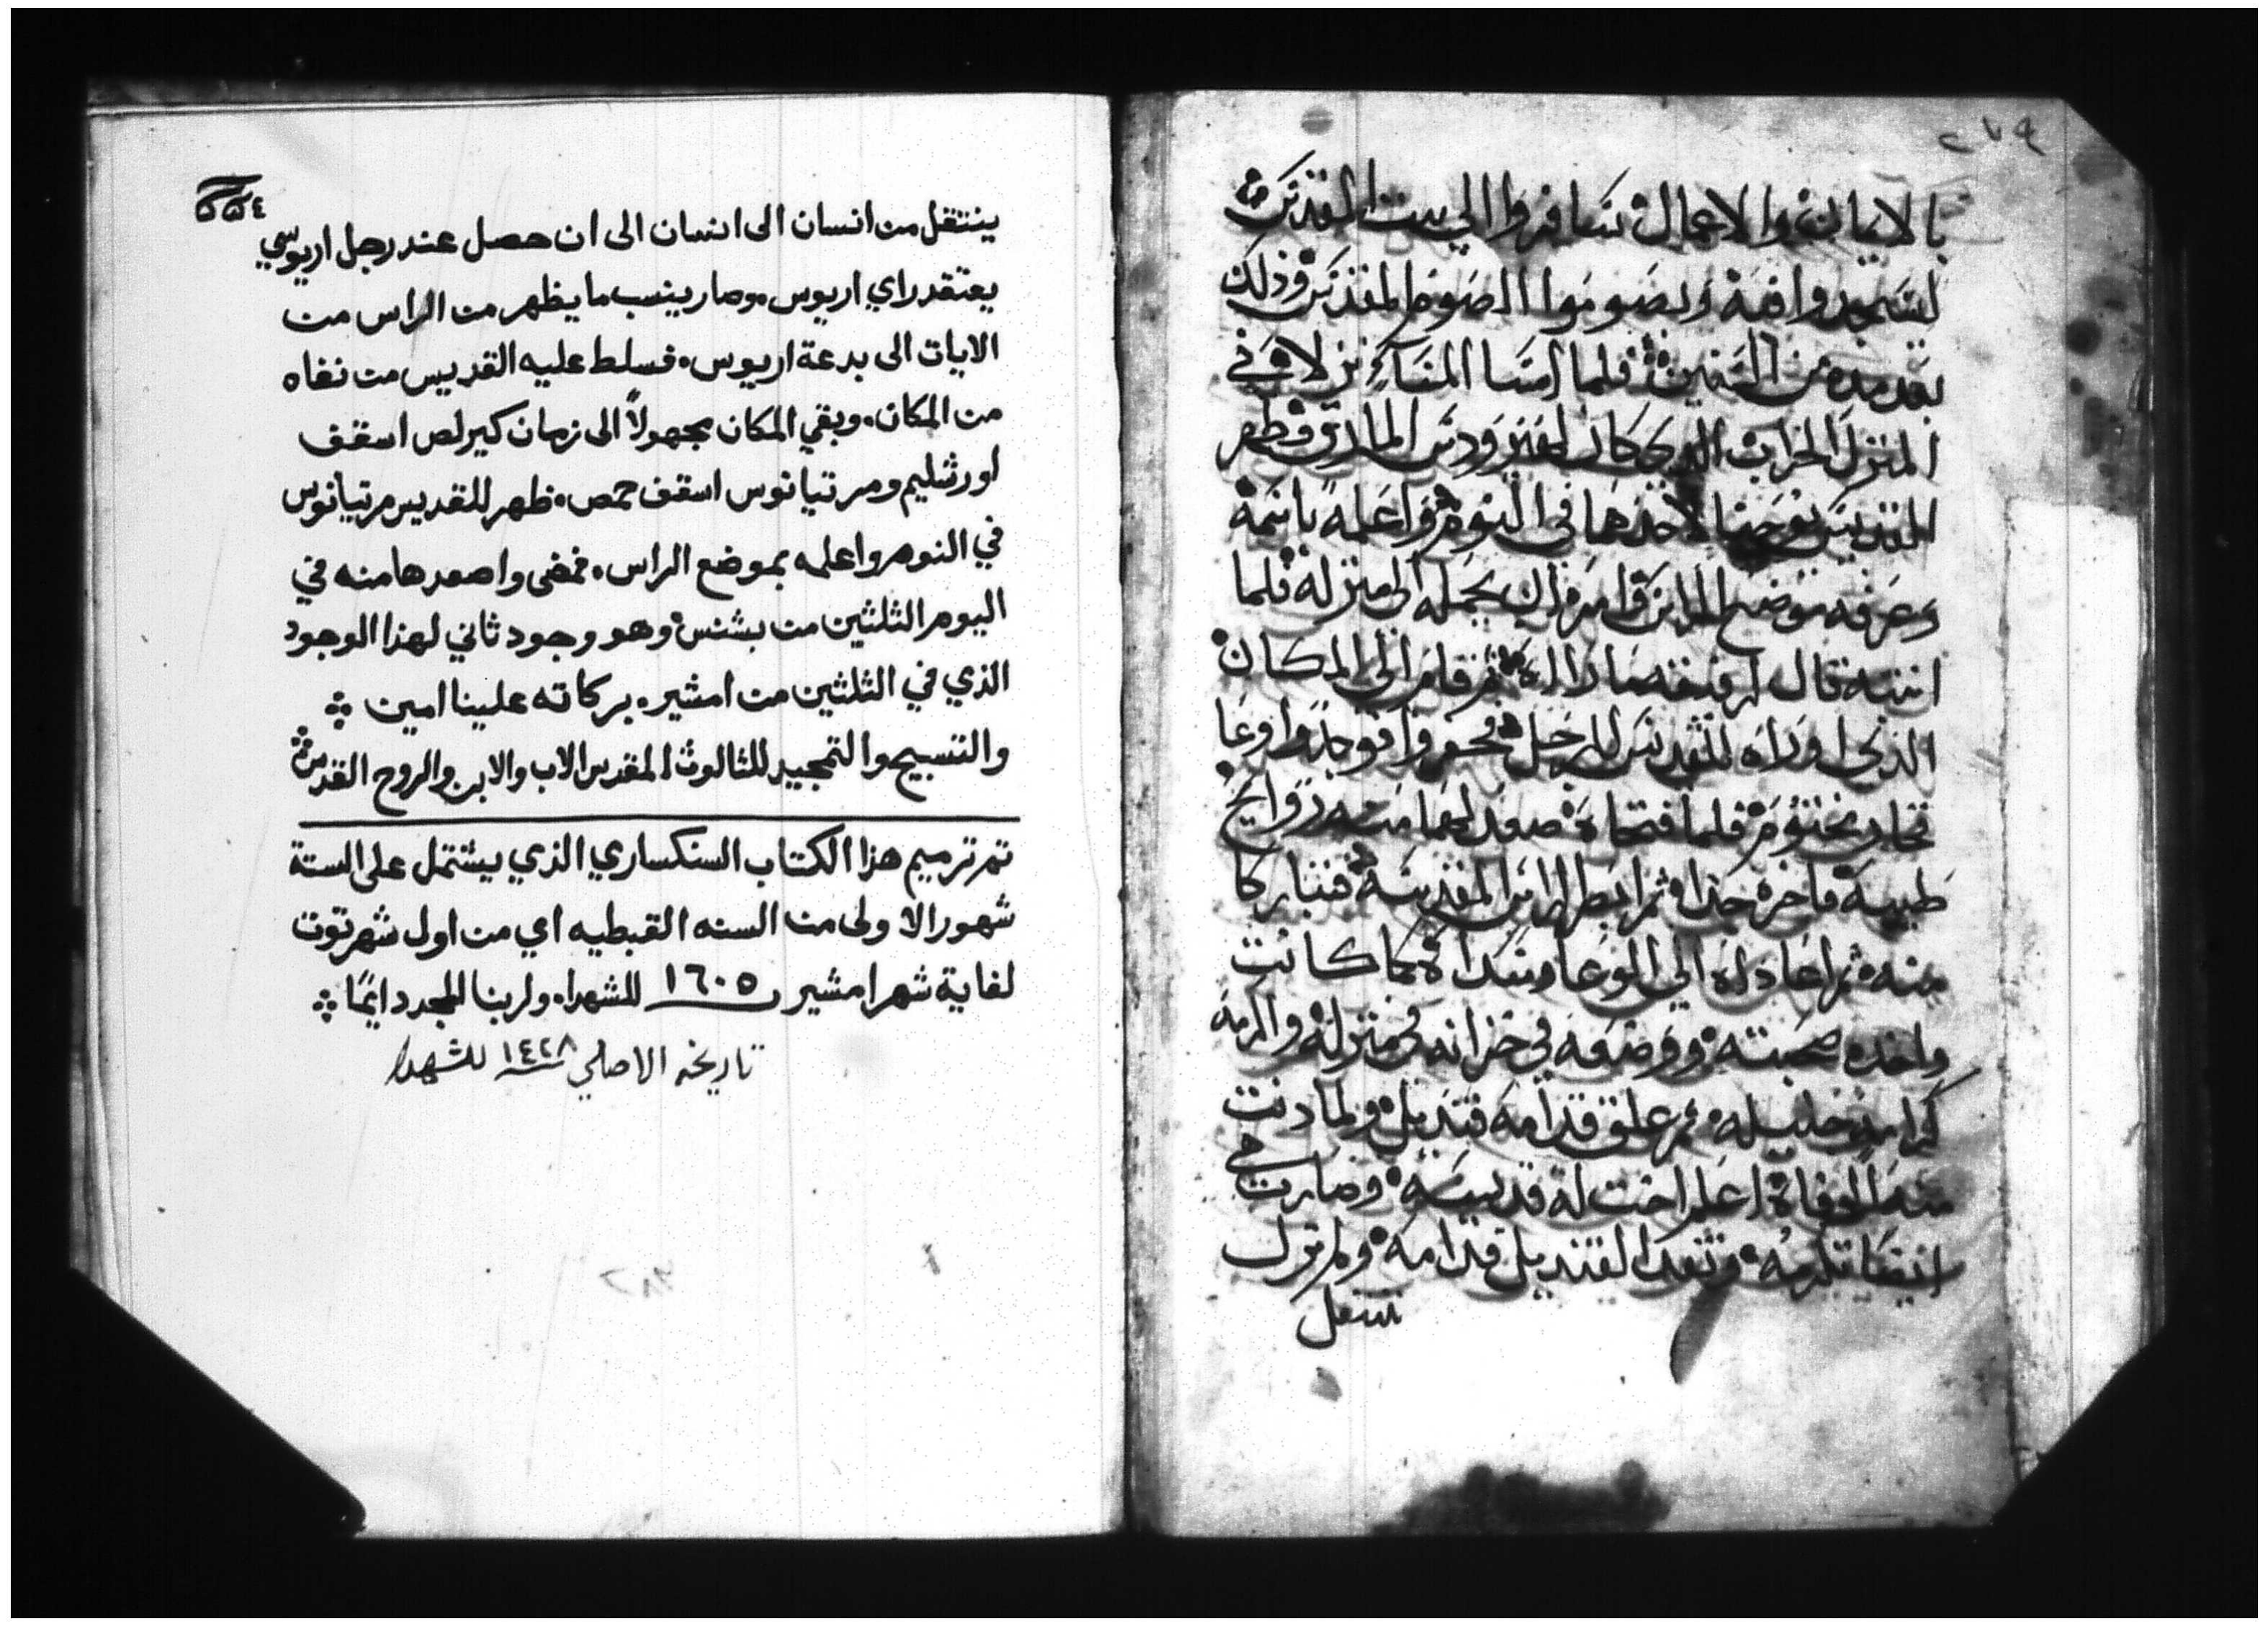 ٢٧٩
بالايمان والاعمال سافروا الي بيت المقدس
ليسجدوا فيه ويصوموا الصوم المقدس وذلك
بعد مده من السنين فلما امسا المساء نزلا في
المنزل الخراب الدي كان لهيرودس المارق فظهر
القديس يوحنا لاحدهما في النوم واعلمه باسمه
وعرفه موضع الراس وامره ان يحمله الى منزله فلما
انتبه قال لرفيقه ما راه ثم قام الى المكان
الذي اوراه القديس للرجل فحفروا فوجدوا وعا
فخار مختوم فلما فتحاه صعد لهما منه روايح
طيبه فاخره جدا ثم ابصرا الراس المقدسه فتباركا
منه ثم اعادوه الي الوعا وسداه كما كانت
واخده صحبته ووضعه في خزانه في منزله والزمه
كرامه جليله ثم علق قدامه قنديل ولما دنت
منه الوفاة اعلم اخت له قديسه وصارت هي
ايضا تكرمه وتوقد القنديل قدامه ولم تزل
تنتقل
ينتقل من انسان الى انسان الى ان حصل عند رجل اريوسي
يعتقد راي اريوس. وصار ينسب ما يظهر من الراس من
الايات الى بدعة اريوس. فسلط عليه القديس من نفاه
من المكان. وبقي المكان مجهولاً الى زمان كيرلص اسقف
اورشليم ومرتيانوس اسقف حمص. ظهر للقديس مرتيانوس
في النوم واعلمه بموضع الراس. فمضى واصعدها منه في
اليوم الثلثين من بشنس وهو وجود ثاني لهذا الوجود
الذي في الثلثين من امشير. بركاته علينا امين
والتسبيح والتمجيد للثالوث المقدس الاب والابن والروح القدس
تم ترميم هذا الكتاب السنكساري الذي يشتمل على الستة
شهور الاولى من السنه القبطيه اي من اول شهر توت
لغاية شهر امشير ١٦٠٥ للشهداء ولربنا المجد دايمًا
تاريخه الاصلي ١٤٢٨ للشهدا